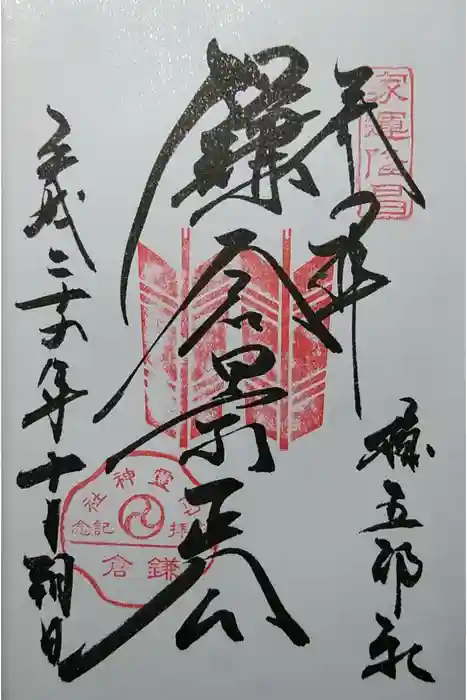 奉拝
家運隆昌
鎌倉景正公
権五郎社
平成二十六年十月朔日
御靈神社
参拝記念
鎌倉